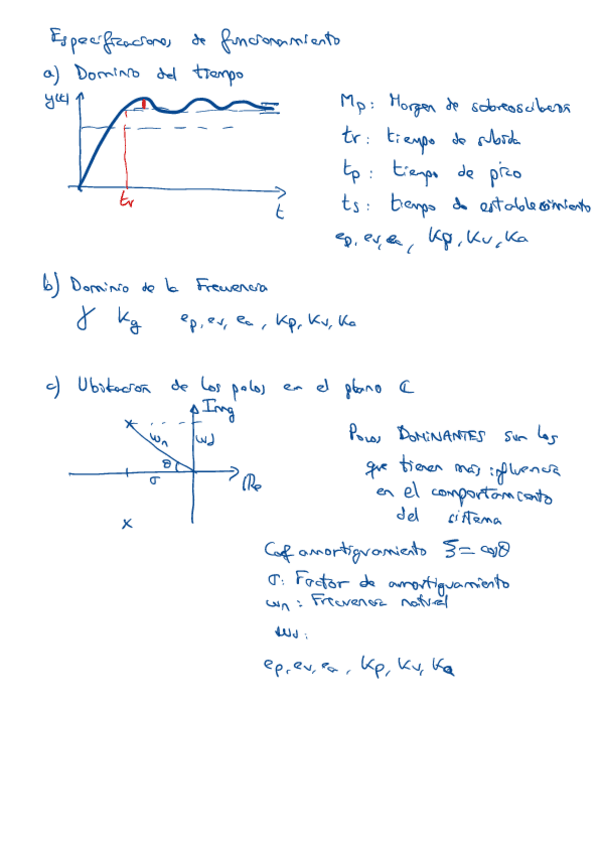 Especificaciones de funcionamiento
a) Dominio del tiempo
y(t)
tr
t
Mp: Margen de sobreosubera
tr: tiempo de subida
tp: tiempo de pico
ts: tiempo de establecimiento
ep, ev, ea, Kp, Kv, Ka
b) Dominio de la Frecuencia
γ kg ep, ev, ea, Kp, Kv, Ka
c) Ubicación de los polos en el plano ℂ
Img
ωn ωd
θ
σ Re
Polos DOMINANTES son los
que tienen mas influencia
en el comportamiento
del sistema
Coef amortiguamiento ξ = cosθ
σ: Factor de amortiguamiento
ωn: Frecuencia natural
ωd:
ep, ev, ea, Kp, Kv, Ka